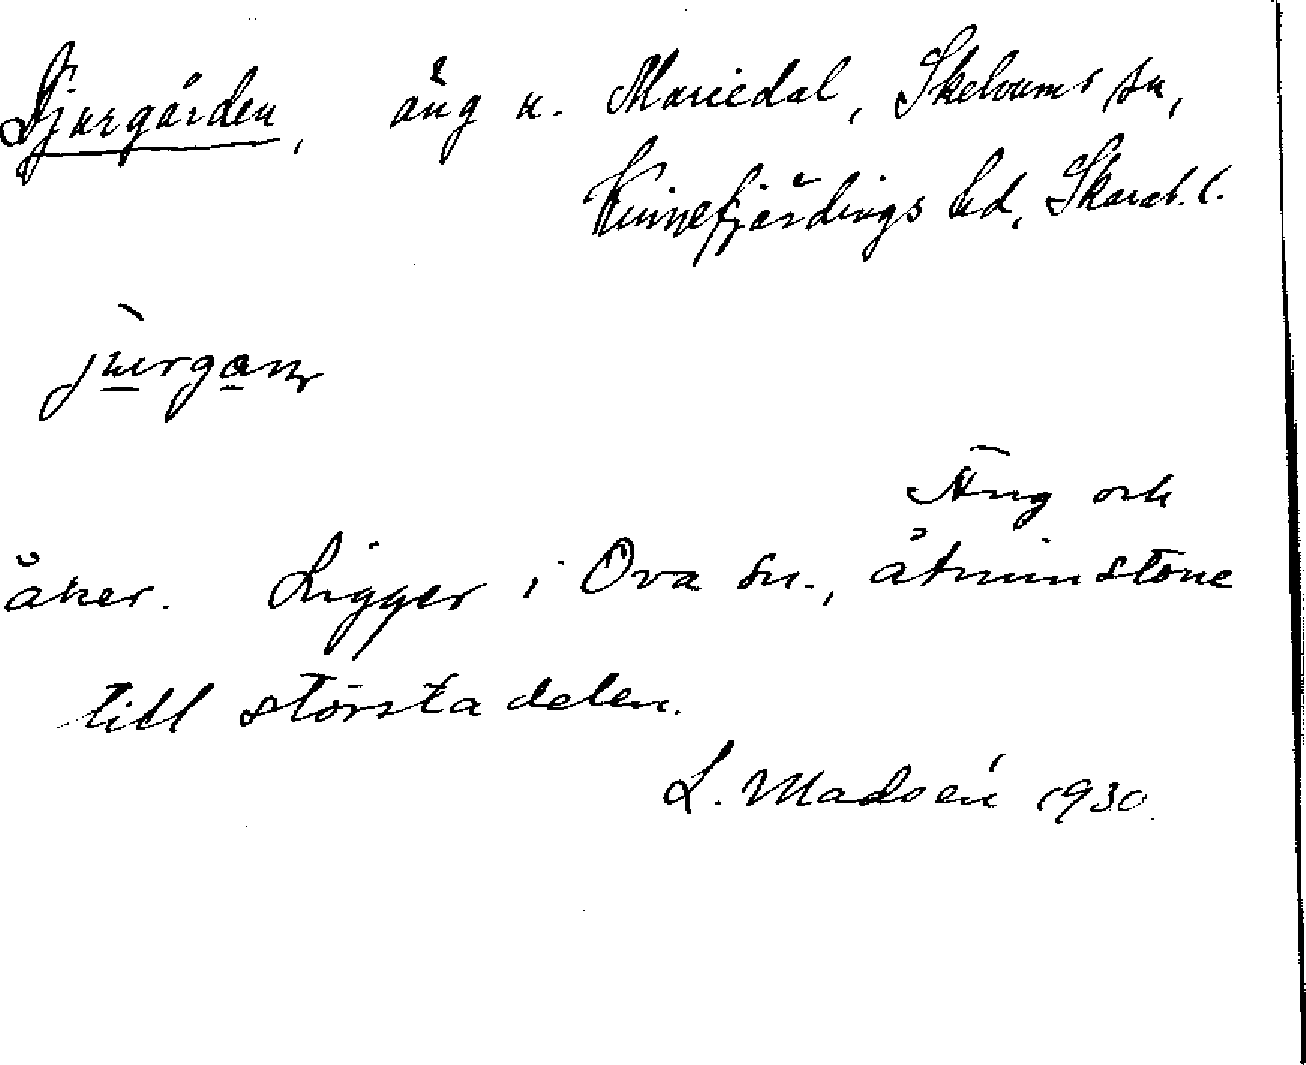 Djurgården, äng u. Mariedal, Skelvums sn,
Kinnefjärdings hd, Skarab. l.
Äng och
åker. Ligger i Ova sn., åtminstone
till största delen.
L. Madsén 1930.